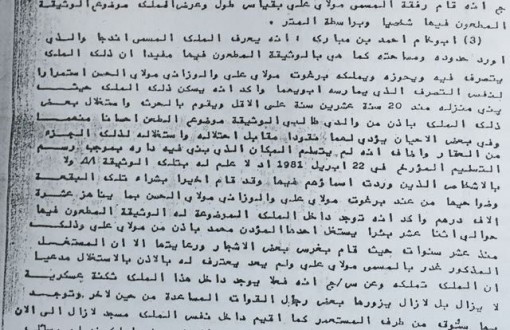 ج انه قام رفقة المسمى مولاي علي بقياس طول وعرض الملك موضوع الوثيقة
المطعون فيها شخصيا وبواسطة المتر .
(3) ابوكام احمد بن مبارك : انه يعرف الملك المسمى اندجا والذي
اورد حدوده ومساحته كما هي بالوثيقة المطعون فيها مفيدا ان ذلك الملك
يتصرف فيه ويحوزه ويملكه برغوت مولاي علي والوزاني مولاي الحسن استمرارا
لنفس التصرف الذي يمارسه ابويهما واكد انه يسكن ذلك الملك حيث
بنى منزله منذ 20 سنة عشرين سنة على الاقل ويقوم بالحرث واستغلال بعض
ذلك الملك باذن من والدي طالبي الوثيقة موضوع الطعن احيانا منهما
وفي بعض الاحيان يؤدي لهما نقودا مقابل احتلاله واستغلاله لذلك الجزء
من العقار واضاف انه لم يتسلم المكان الذي بنى فيه داره بموجب رسم
التسليم المؤرخ في 22 ابريل 1981 اد لا علم له بتلك الوثيقة ولا
بالاشخاص الذين وردت اسماؤهم فيها وقد قام اخيرا بشراء تلك البقعة
وضواحيها من عند برغوت مولاي علي والوزاني مولاي الحسن بما يناهز عشرة
الاف درهم واكد انه توجد داخل الملك الموضوعة له الوثيقة المطعون فيها
حوالي اثنا عشر بئرا يستغل احدها المؤدن محمد باذن من مولاي علي وذلك
منذ عشر سنوات حيث قام بغرس بعض الاشجار ورعايتها الا ان المستغل
المذكور غدر بالمسمى مولاي علي ولم يعد يعترف له بالاذن بالاستغلال مدعيا
ان الملك تملكه وعن س/ج انه فعلا يوجد داخل هذا الملك ثكنة عسكرية
لا يزال بل لازال يزورها بعض رجال القوات المساعدة من حين لاخر وتوجد
من طرف المستعمر كما اقيم داخل نفس الملك مسجد لازال الى الان